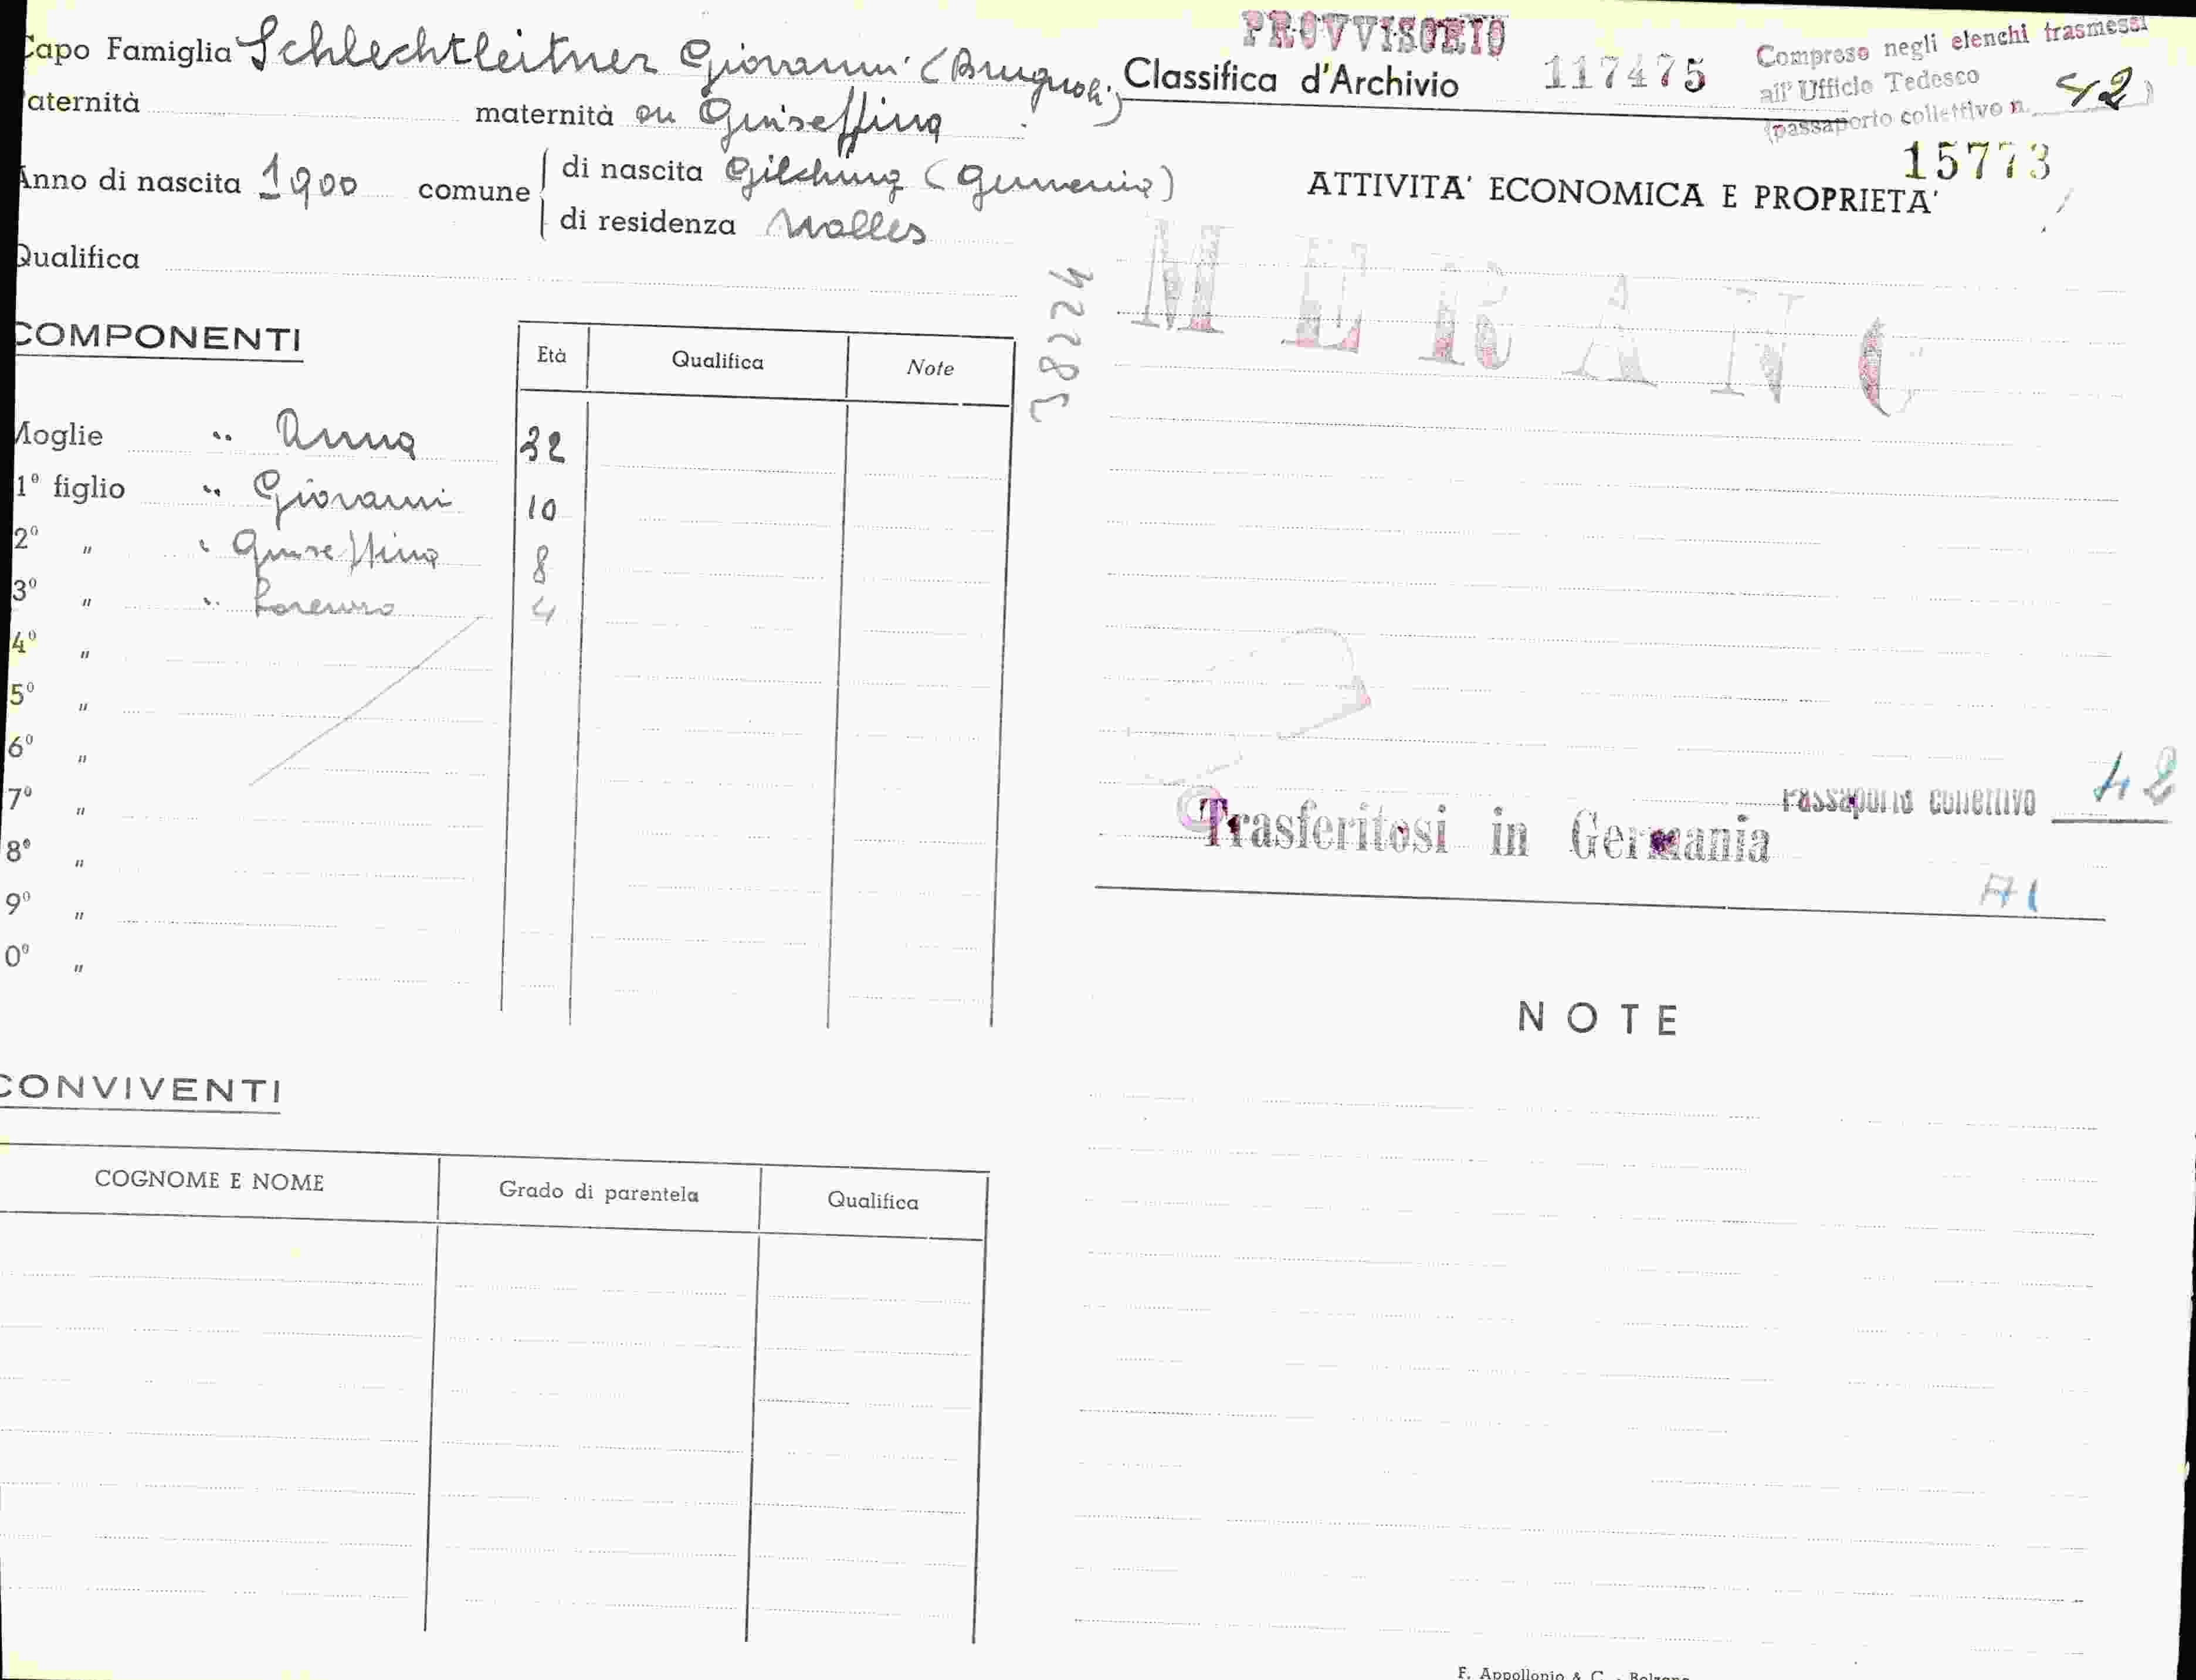 PROVVISORIO
Capo Famiglia Schlechtleitner Giovanni (Brugnoli)
Classifica d'Archivio 117475
Compreso negli elenchi trasmessi
all'Ufficio Tedesco
(passaporto collettivo n. 42)
aternità maternità di Giuseffina
15773
Anno di nascita 1900 comune di nascita Gilching (Germania)
di residenza Malles
ATTIVITA' ECONOMICA E PROPRIETA'
Qualifica
38224
MERANO
COMPONENTI
Età Qualifica Note
Moglie " Anna 32
1º figlio " Giovanni 10
2º " " Giuseffina 8
3º " " Lorenzo 4
4º "
5º "
6º "
7º "
8º "
9º "
0º "
Trasferitosi in Germania
Passaporto collettivo 42
A1
NOTE
CONVIVENTI
COGNOME E NOME Grado di parentela Qualifica
F. Appollonio & C. - Bolzano